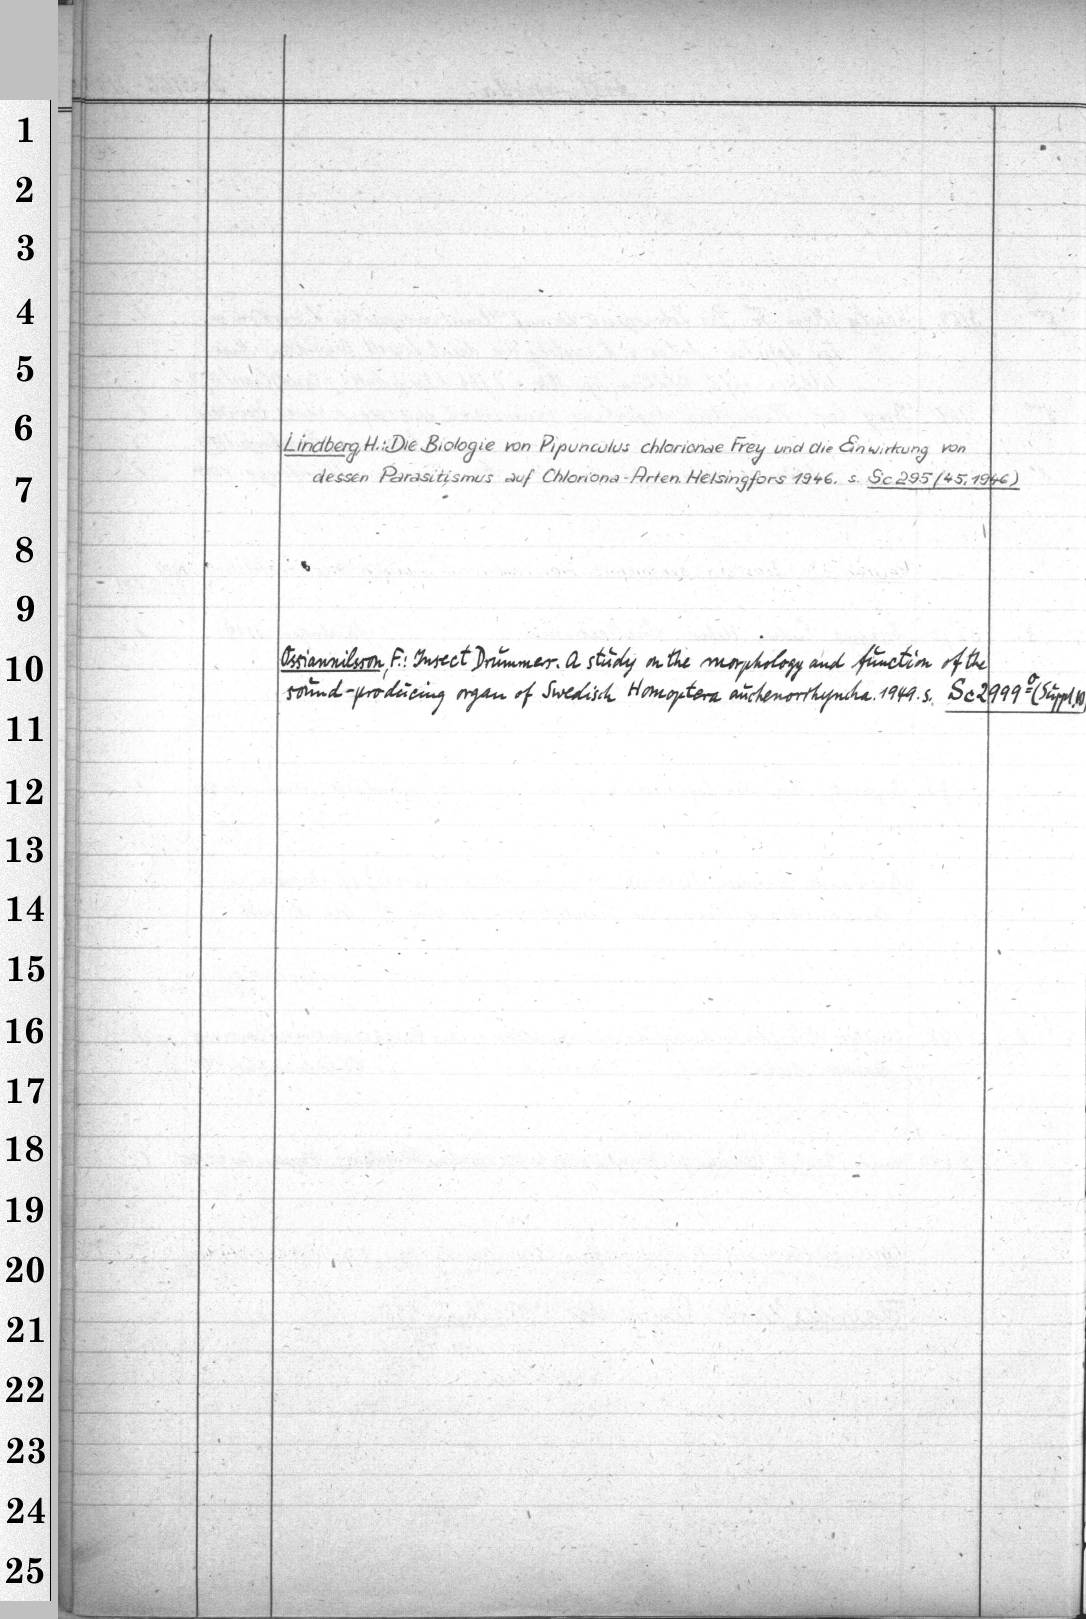 1
2
3
4
5
6
Lindberg, H.: Die Biologie von Pipunculus chlorionae Frey und die Einwirkung von
dessen Parasitismus auf Chloriona-Arten. Helsingfors 1946. s. Sc 295 (45, 1946)
7
8
9
10
Ossiannilsson, F.: Insect Drummer. A study on the morphology and function of the
sound-producing organ of Swedisch Homoptera auchenorrhyncha. 1949. s. Sc 2999º (Suppl.
11
12
13
14
15
16
17
18
19
20
21
22
23
24
25